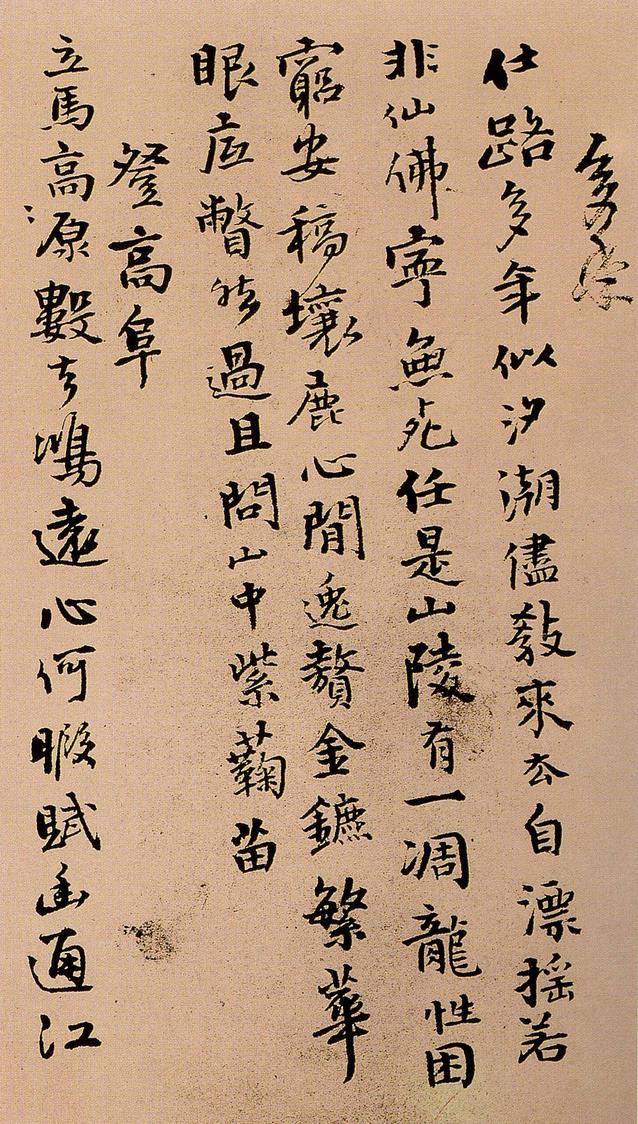 多
仕路多年似汐潮儘教來去自漂搖若
非仙佛寧無死任是山陵有一凋龍性困
窮安稿壤鹿心閒逸贅金鑣繁華
眼底瞥然過且問山中紫蘜苗
登高阜
立馬高源數去鴻遠心何暇賦幽通江